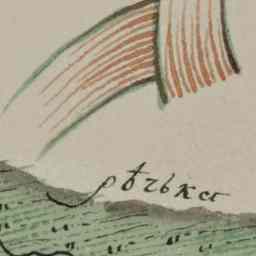 рѣчька